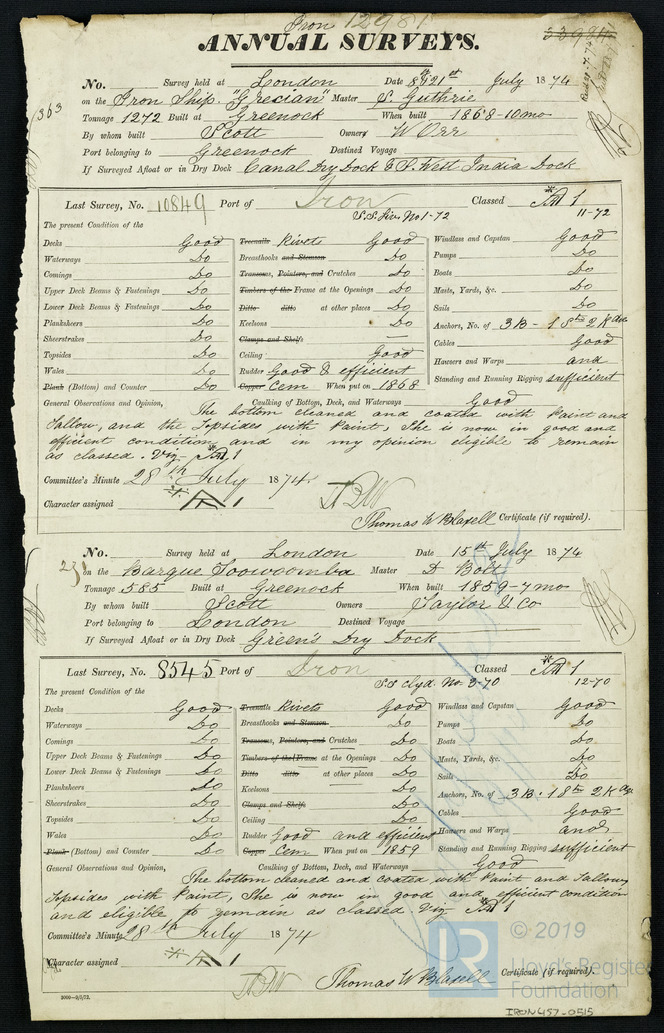 Iron 12981
ANNUAL SURVEYS.
No. Survey held at London Date 8th 21st July 1874
on the Iron Ship "Grecian" Master S. Guthrie
Tonnage 1272 Built at Greenock When built 1868-10mo
By whom built Scott Owners W Orr
Port belonging to Greenock Destined Voyage
If Surveyed Afloat or in Dry Dock Canal Dry Dock & S. West India Dock
Last Survey, No. 10849 Port of Iron Classed A 1
S.S. Liv. No 1-72 11-72
The present Condition of the
Decks Good
Waterways Do
Comings Do
Upper Deck Beams & Fastenings Do
Lower Deck Beams & Fastenings Do
Planksheers Do
Sheerstrakes Do
Topsides Do
Wales Do
Plank (Bottom) and Counter Do
Treenails Rivets Good
Breasthooks and Stemson Do
Transoms, Pointers, and Crutches Do
Timbers of the Frame at the Openings Do
Ditto ditto at other places Do
Keelsons Do
Clamps and Shelfs —
Ceiling Good
Rudder Good & efficient
Copper Cem When put on 1868
Windlass and Capstan Good
Pumps Do
Boats Do
Masts, Yards, &c. Do
Sails Do
Anchors, No. of 3 B - 1 St 2 K
Cables Good
Hawsers and Warps and
Standing and Running Rigging sufficient
General Observations and Opinion, Caulking of Bottom, Deck, and Waterways Good
The bottom cleaned and coated with Paint and
Tallow, and the Topsides with Paint, She is now in good and
efficient condition and in my opinion eligible to remain
as classed. Viz A 1
Committee's Minute 28th July 1874
Character assigned A 1
Thomas W Blaxell Certificate (if required).
No. Survey held at London Date 15th July 1874
on the Barque Toowoomba Master A Bolt
Tonnage 585 Built at Greenock When built 1859-7mo
By whom built Scott Owners Taylor & Co
Port belonging to London Destined Voyage
If Surveyed Afloat or in Dry Dock Green's Dry Dock
Last Survey, No. 8545 Port of Iron Classed A 1
S.S. Clyd. No 3-70 12-70
The present Condition of the
Decks Good
Waterways Do
Comings Do
Upper Deck Beams & Fastenings Do
Lower Deck Beams & Fastenings Do
Planksheers Do
Sheerstrakes Do
Topsides Do
Wales Do
Plank (Bottom) and Counter Do
Treenails Rivets Good
Breasthooks and Stemson Do
Transoms, Pointers, and Crutches Do
Timbers of the Frame at the Openings Do
Ditto ditto at other places Do
Keelsons Do
Clamps and Shelfs Do
Ceiling Do
Rudder Good and efficient
Copper Cem When put on 1859
Windlass and Capstan Good
Pumps Do
Boats Do
Masts, Yards, &c. Do
Sails Do
Anchors, No. of 3 B. 1 St 2 K
Cables Good
Hawsers and Warps and
Standing and Running Rigging sufficient
General Observations and Opinion, Caulking of Bottom, Deck, and Waterways Good
The bottom cleaned and coated with Paint and Tallow
Topsides with Paint, She is now in good and efficient condition
and eligible to remain as classed. Viz A 1
Committee's Minute 28th July 1874
Character assigned A 1
Thomas W Blaxell Certificate (if required).
© 2019
Lloyd's Register
Foundation
IRON457-0515